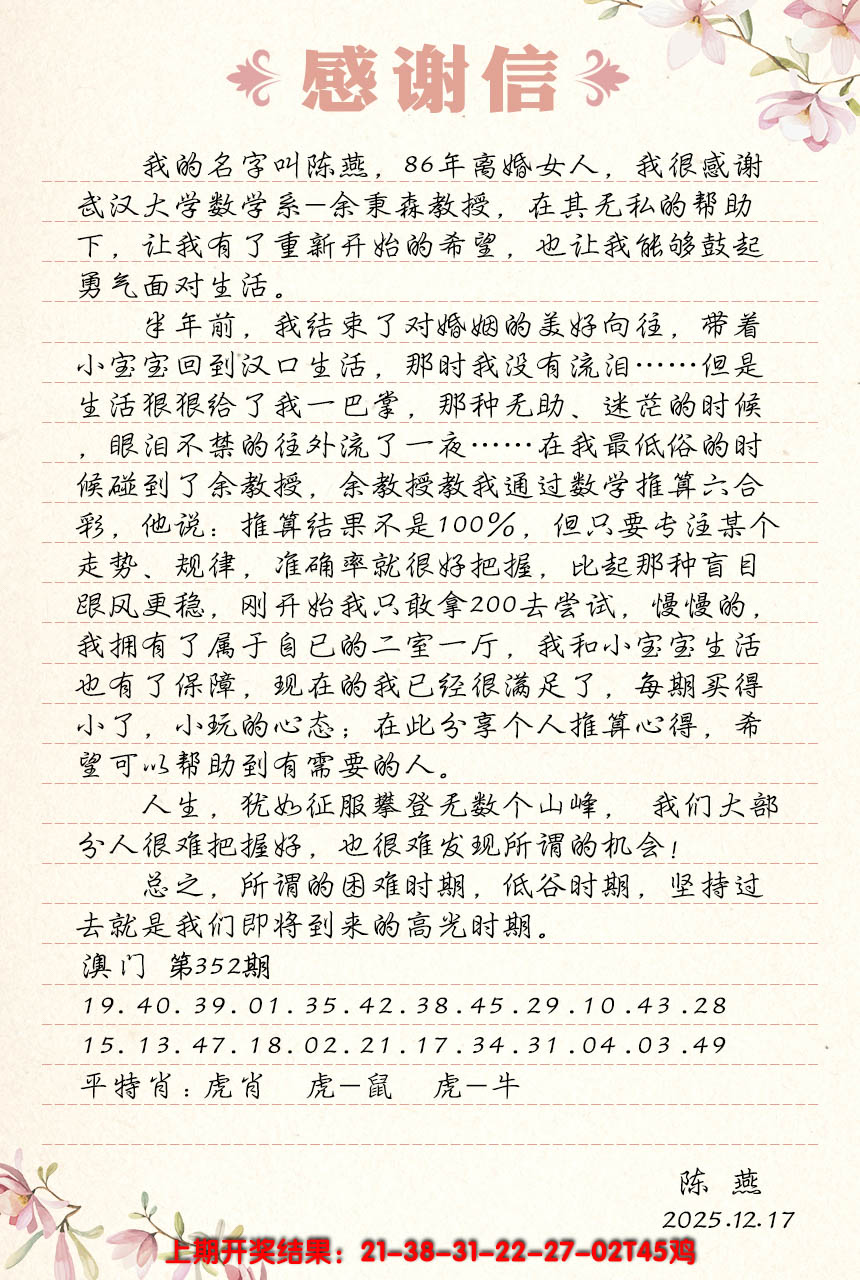 感谢信
我的名字叫陈燕，86年离婚女人，我很感谢
武汉大学数学系-余秉森教授，在其无私的帮助
下，让我有了重新开始的希望，也让我能够鼓起
勇气面对生活。
半年前，我结束了对婚姻的美好向往，带着
小宝宝回到汉口生活，那时我没有流泪……但是
生活狠狠给了我一巴掌，那种无助、迷茫的时候
，眼泪不禁的往外流了一夜……在我最低俗的时
候碰到了余教授，余教授教我通过数学推算六合
彩，他说：推算结果不是100%，但只要专注某个
走势、规律，准确率就很好把握，比起那种盲目
跟风更稳，刚开始我只敢拿200去尝试，慢慢的，
我拥有了属于自已的二室一厅，我和小宝宝生活
也有了保障，现在的我已经很满足了，每期买得
小了，小玩的心态；在此分享个人推算心得，希
望可以帮助到有需要的人。
人生，犹如征服攀登无数个山峰， 我们大部
分人很难把握好，也很难发现所谓的机会！
总之，所谓的困难时期，低谷时期，坚持过
去就是我们即将到来的高光时期。
澳门 第352期
19.40.39.01.35.42.38.45.29.10.43.28
15.13.47.18.02.21.17.34.31.04.03.49
平特肖：虎肖 虎-鼠 虎-牛
陈 燕
2025.12.17
上期开奖结果：21-38-31-22-27-02T45鸡